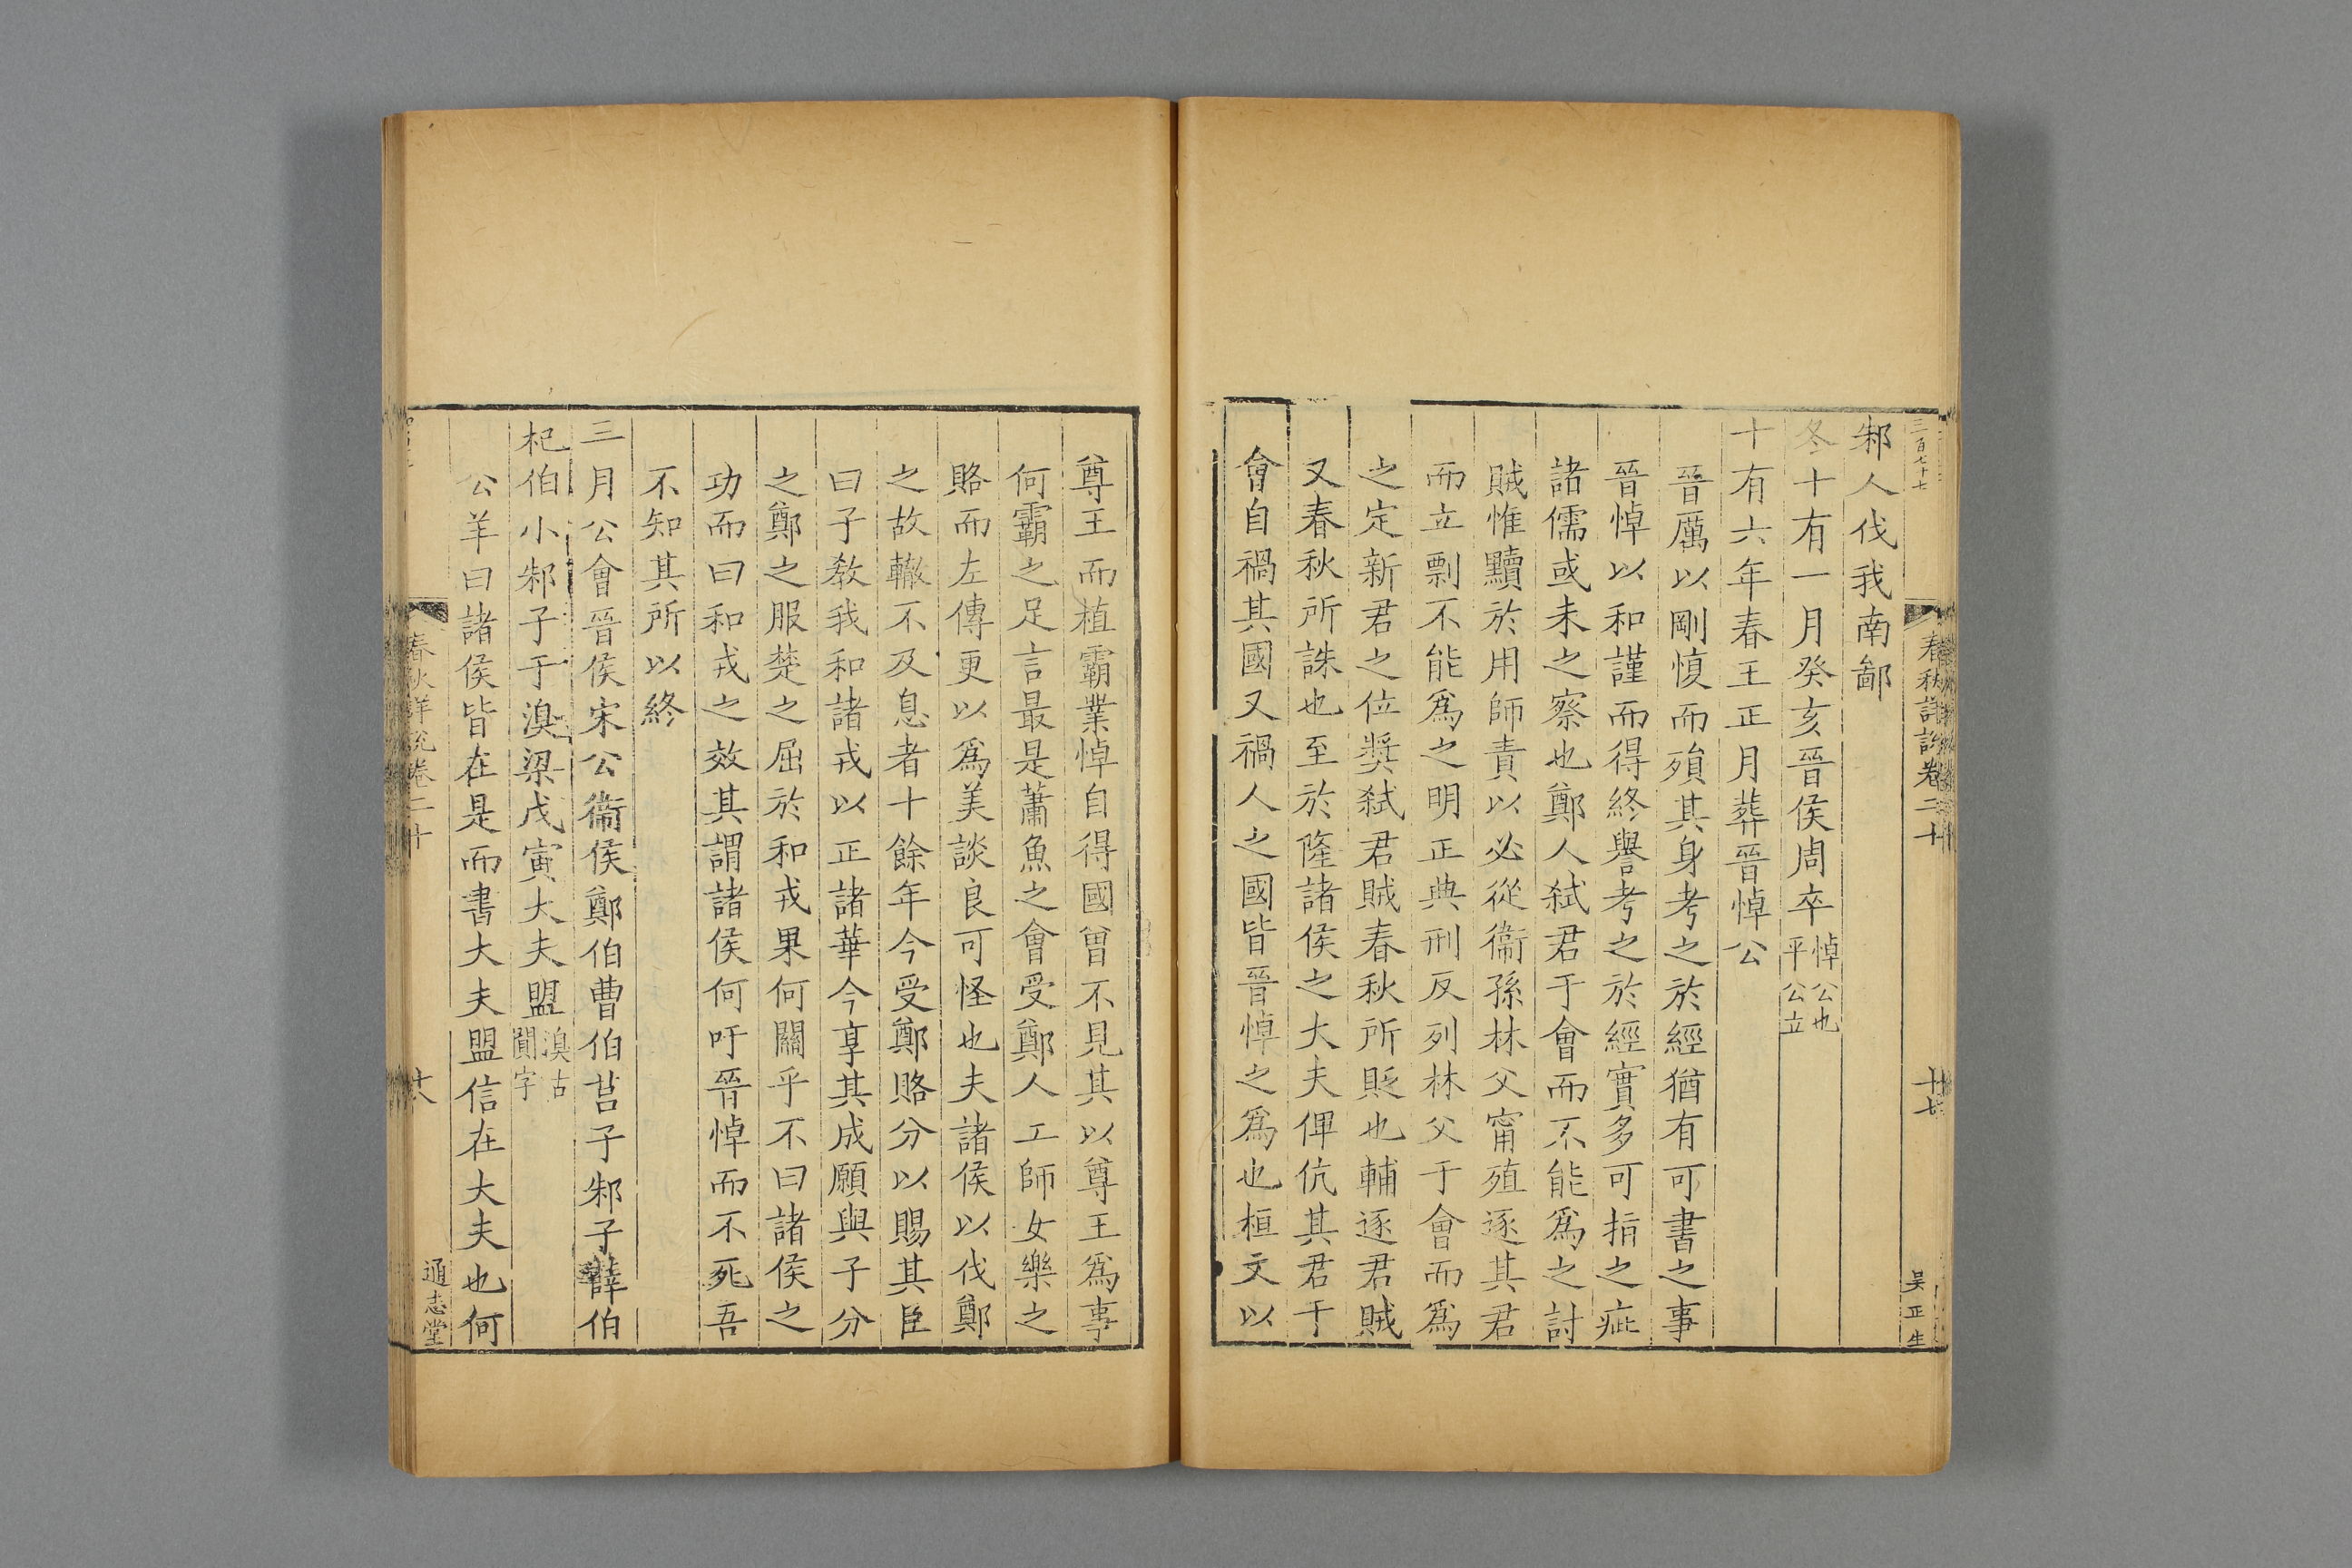 三百七十七
春秋詳說卷二十
十七
吴正生
邾人伐我南鄙
冬十有一月癸亥晉侯周卒悼公也平公立
十有六年春王正月葬晉悼公
晉厲以剛愎而殞其身考之於經猶有可書之事
晉悼以和謹而得終譽考之於經實多可指之疵
諸儒或未之察也鄭人弑君于會而不能爲之討
賊惟黷於用師責以必從衞孫林父甯殖逐其君
而立剽不能爲之明正典刑反列林父于會而爲
之定新君之位奬弑君賊春秋所貶也輔逐君賊
又春秋所誅也至於隆諸侯之大夫俾伉其君于
會自禍其國又禍人之國皆晉悼之爲也桓文以
尊王而植霸業悼自得國曾不見其以尊王爲事
何霸之足言最是蕭魚之會受鄭人工師女樂之
賂而左傳更以爲美談良可怪也夫諸侯以伐鄭
之故轍不及息者十餘年今受鄭賂分以賜其臣
曰子教我和諸戎以正諸華今享其成願與子分
之鄭之服楚之屈於和戎果何關乎不曰諸侯之
功而曰和戎之效其謂諸侯何吁晉悼而不死吾
不知其所以終
三月公會晉侯宋公衞侯鄭伯曹伯莒子邾子薛伯
杞伯小邾子于湨梁戊寅大夫盟湨古闃字
公羊曰諸侯皆在是而書大夫盟信在大夫也何
春秋詳說卷二十
十八
通志堂